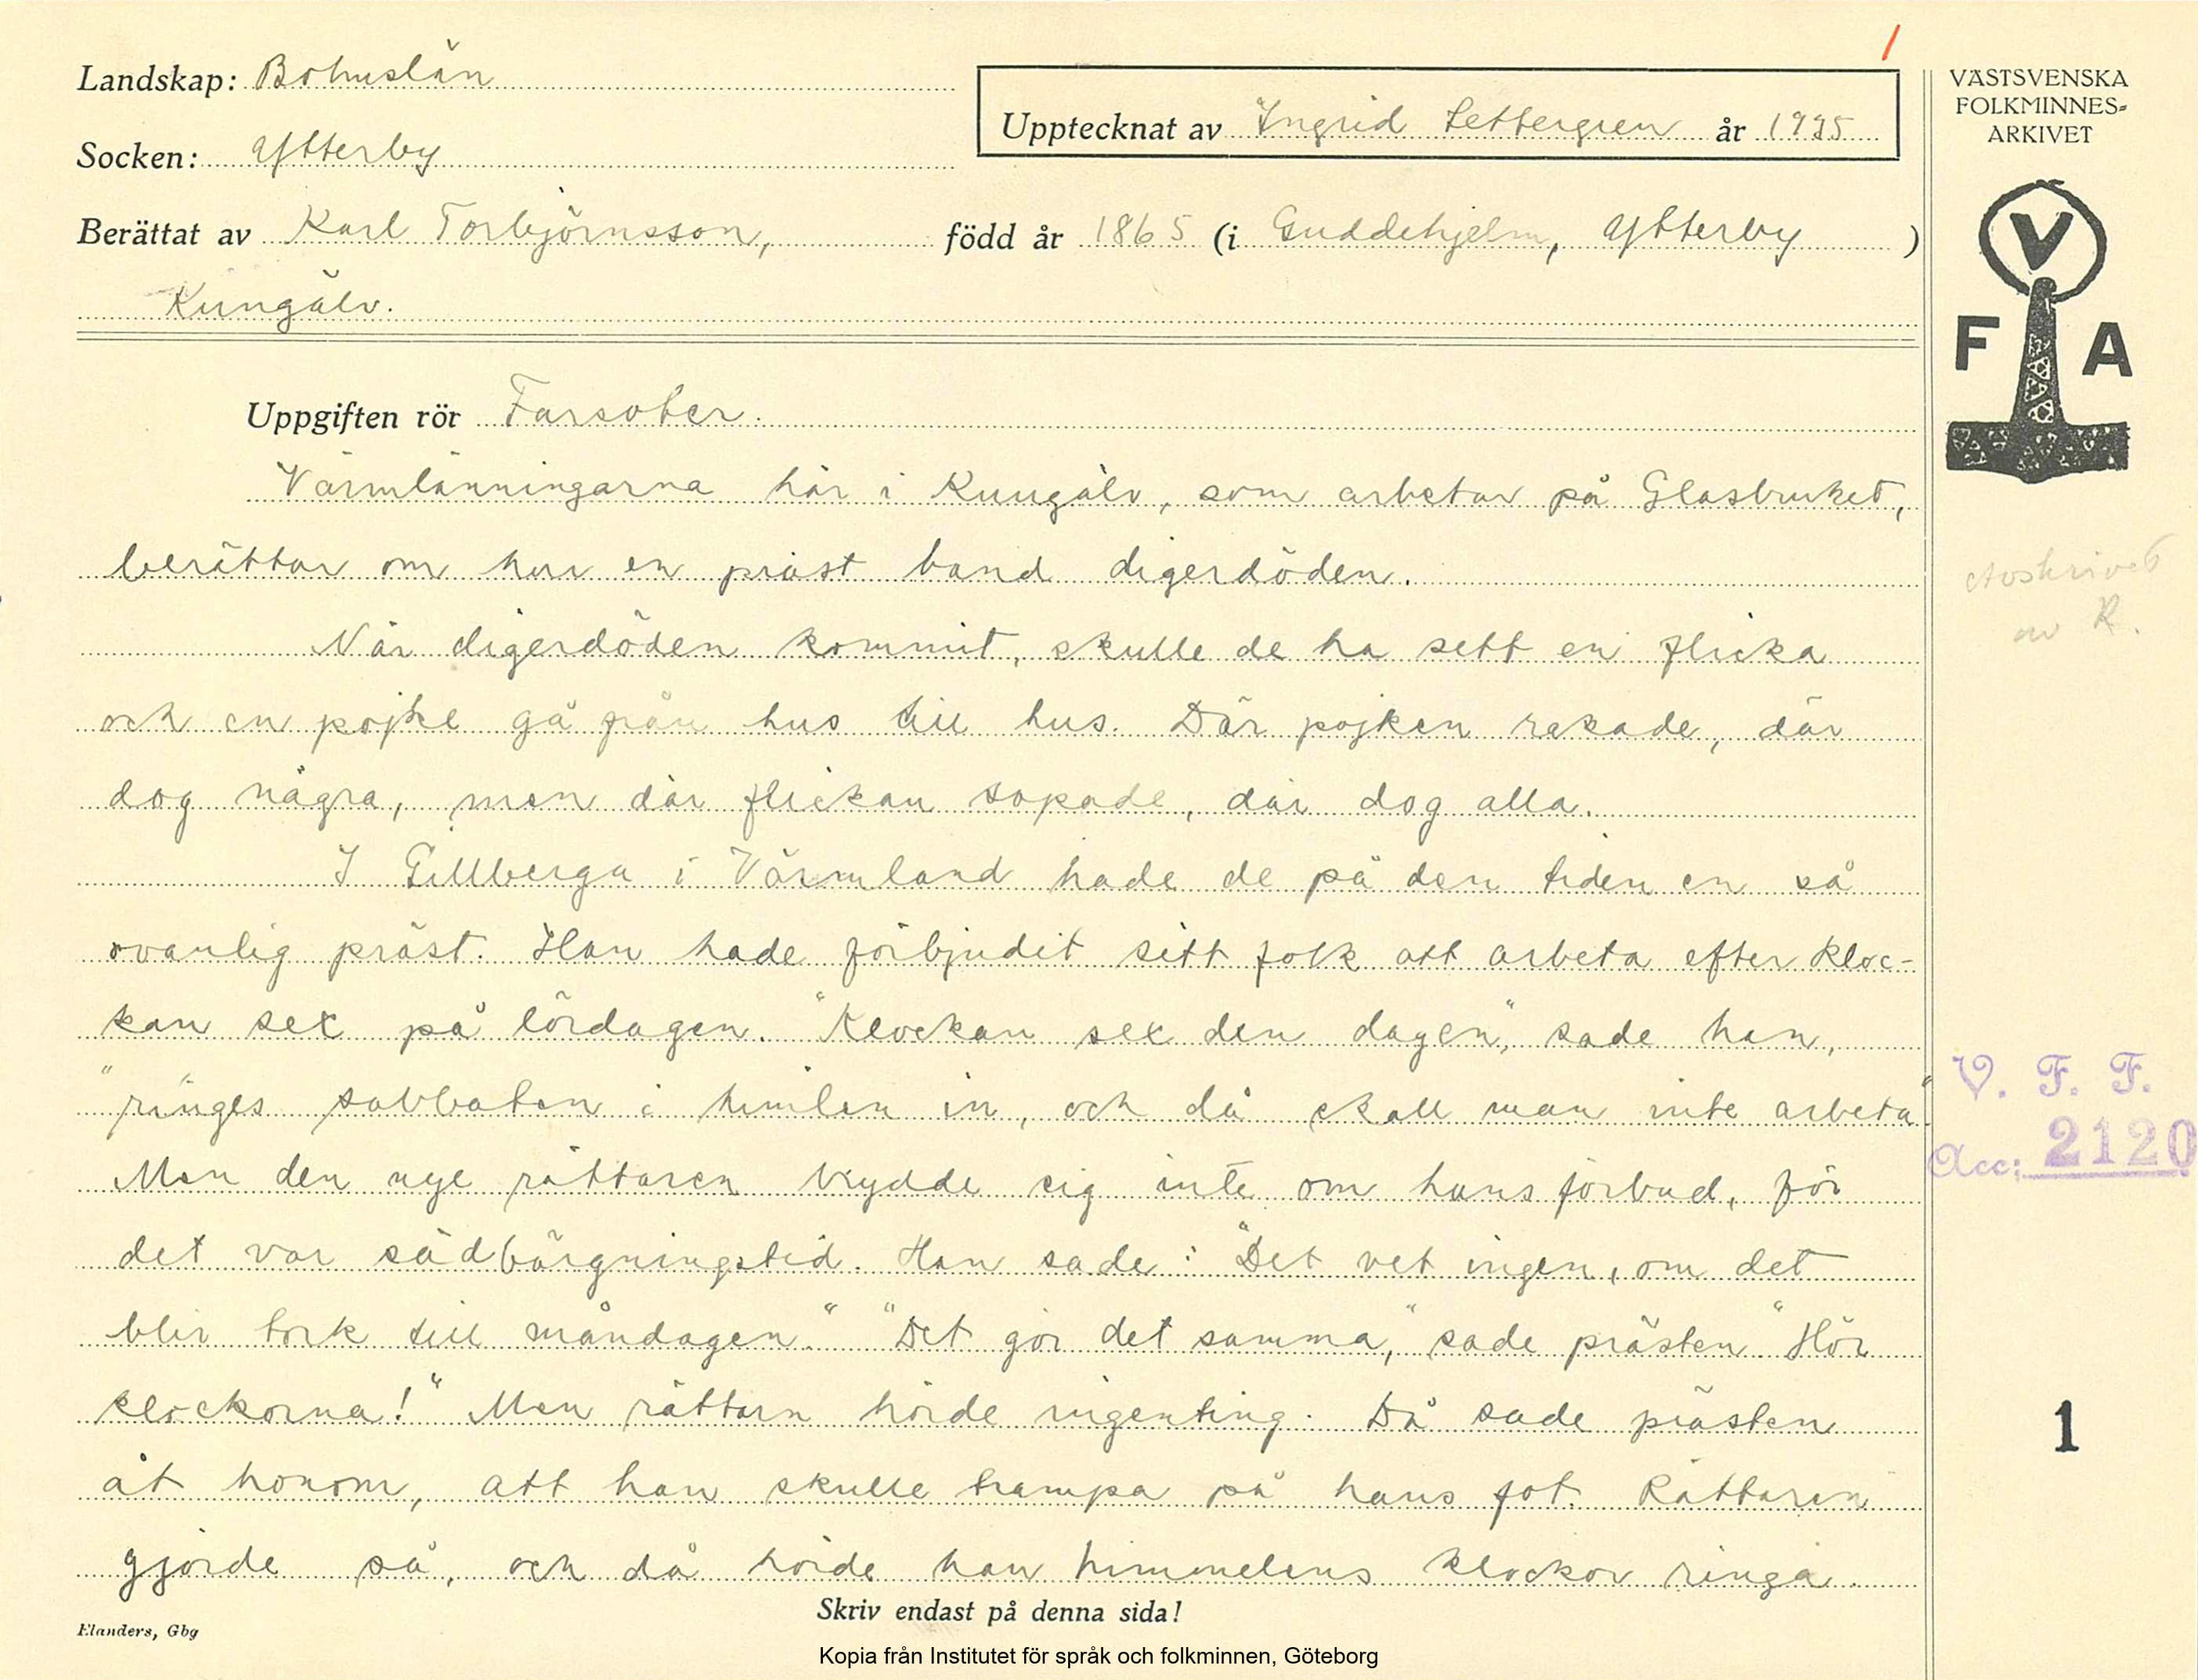 Landskap: Bohuslän
Socken: Ytterby
Upptecknat av Ingrid Settergren år 1925
Berättat av Karl Torbjörnsson, född år 1865 (i Guddehjelm, Ytterby )
Kungälv.
Uppgiften rör Farsoter.
Värmlänningarna här i Kungälv, som arbetar på Glasbruket,
berättar om hur en präst band digerdöden.
När digerdöden kommit, skulle de ha sett en flicka
och en pojke gå från hus till hus. Där pojken rakade, där
dog några, men där flickan sopade, där dog alla.
I Gillberga i Värmland hade de på den tiden en så
ovanlig präst. Han hade förbjudit sitt folk att arbeta efter kloc-
kan sex på lördagen. "Klockan sex den dagen", sade han,
"ringes sabbaten i himlen in, och då skall man inte arbeta".
Men den nye rättaren brydde sig inte om hans förbud, för
det var sädbärgningstid. Han sade: "Det vet ingen, om det
blir tork till måndagen." "Det gör det samma," sade prästen. "Hör
klockorna!" Men rättarn hörde ingenting. Då sade prästen
åt honom, att han skulle trampa på hans fot. Rättaren
gjorde så, och då hörde han himmelens klockor ringa.
Skriv endast på denna sida!
Elanders, Gbg
Kopia från Institutet för språk och folkminnen, Göteborg
VÄSTSVENSKA
FOLKMINNES-
ARKIVET
V
F A
Avskrivet
av R.
V. F. F.
Acc: 2120
1